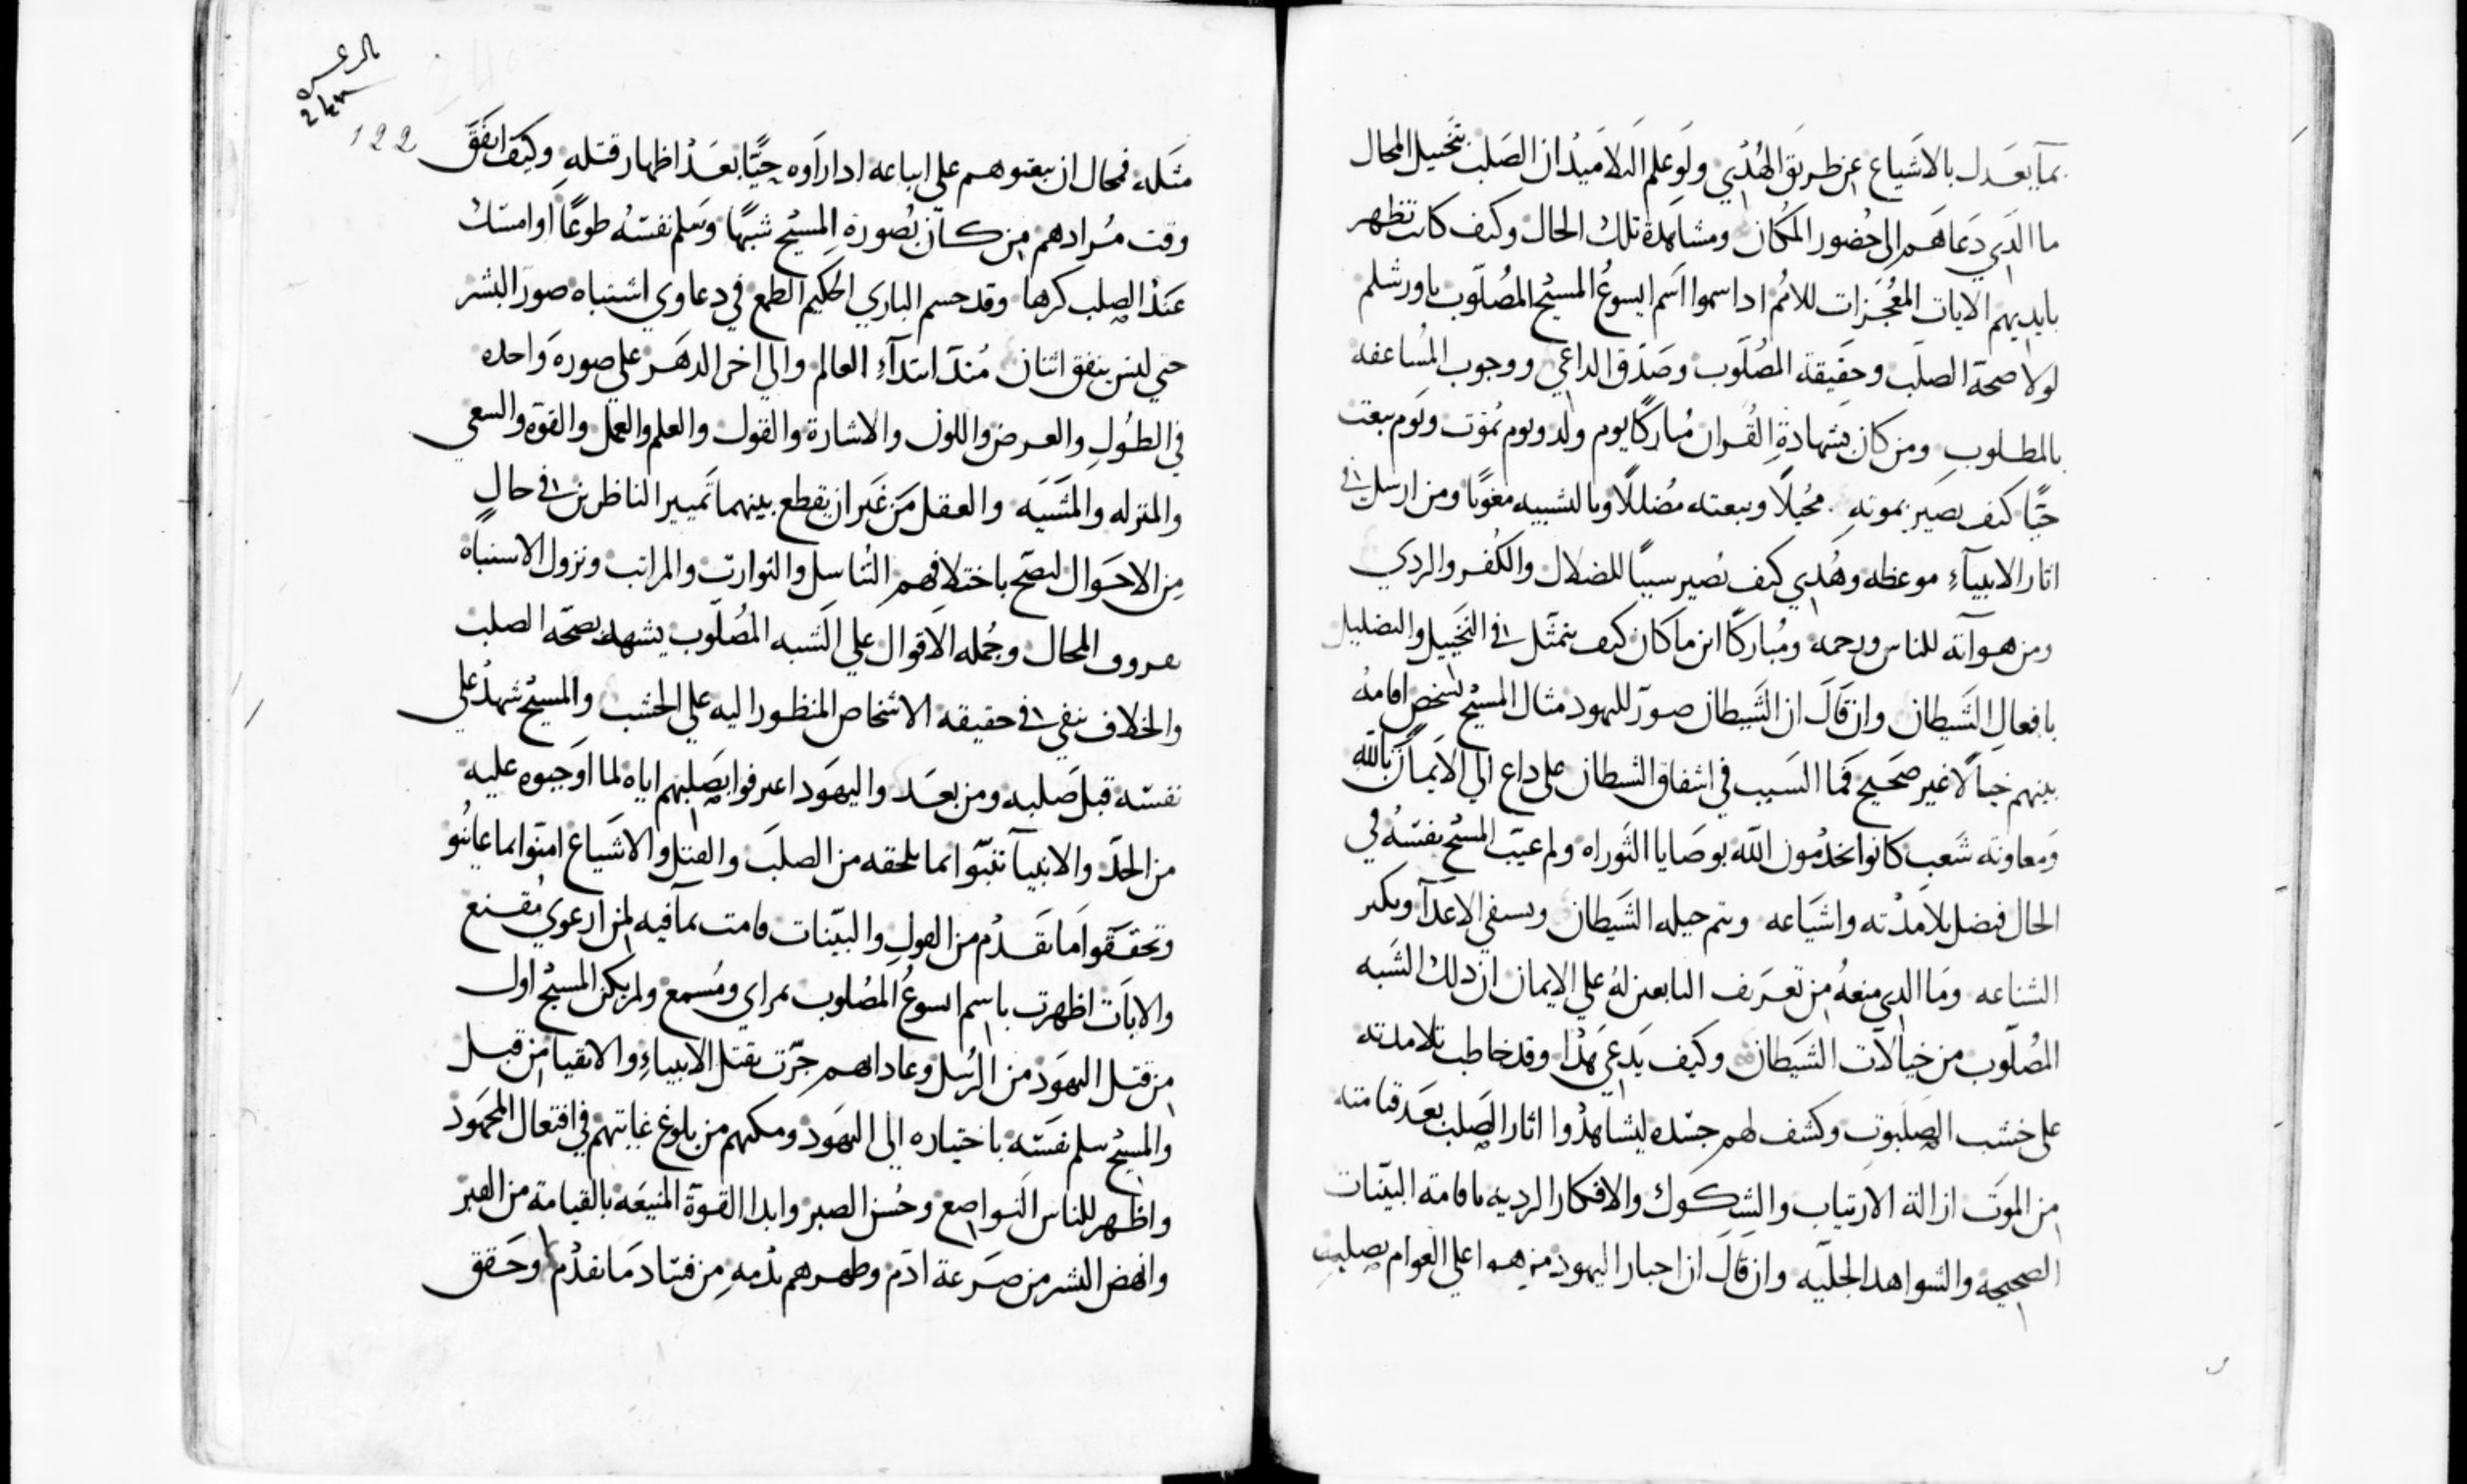 بما يعدل بالاشياع عن طريق الهُدي ولو علم التلاميذ ان الصلب بتخييل المحال
ما الذي دعاهم الى حضور المكان ومشاهدة تلك الحال وكيف كانت تظهر
بايديهم الايات المعُجزات للامُم اذا سموا اسم ايسوع المسيح المصُلوب باورشلم
لولا صحة الصلب وحقيقة المصُلوب وصدق الداعي ووجوب المُساعفه
بالمطلوب ومن كان بشهادةِ القُران مُباركًا يوم ولد ويوم يمُوت ويوم يبعث
حيًا كيف يصير بموتهِ مخُيلًا وببعثه مُضللًا وبالتشبيه مغويًا ومن ارسل في
اثار الانبياءِ موعظه وهُدي كيف تصير سببًا للضلال والكُفر والردي
ومن هو آية للناس ورحمه ومُباركًا اين ما كان كيف يتمثل في التخييل والتضليل
بافعالِ الشيطان وان قال ان الشيطان صور لليهود مثال المسيح لشخص اقامهُ
بينهم خيالًا غير صحيح فما السبب في اشفاق الشيطان على داع الي الايمان بالله
ومعاونة شعب كانوا يخدمون الله بوصايا التوراه ولم عيب المسيح نفسهُ في
الحال فيضل تلامذته واشياعه ويتم حيله الشيطان ويسفي الاعدآ ويكبر
الشناعه وما الذي منعهُ من تعريف التابعين لهُ علي الايمان ان ذلك الشبه
المصُلوب من خيالآت الشيطان وكيف يدعي هذا وقد خاطب تلامذته
على خشب الصلبوت وكشف لهم جسده ليشاهدُوا اثار الصلب بعد قيامته
من الموت ازالة الارتياب والشكوك والافكار الرديه باقامة البينات
الصحيحه والشواهد الجليه وان قال ان احبار اليهود موهوا على العوام بصلبِ
122
مثله فمحال ان يبقوهم على اتباعه اذا رآوه حيًّا بعد اظهار قتلهِ وكيف اتفق
وقت مُرادهم من كان بصُورة المسيح شبهًا وسلم نفسهُ طوعًا او امسك
عند الصلب كرها وقد حسم الباري الحكيم الطمع في دعاوي اشتباه صور البشر
حتي ليس يتفق اثنان مُنذ ابتدآءِ العالم والي اخر الدهر على صورة واحده
في الطُولِ والعرض واللون والاشارة والقول والعلم والعمل والقوة والسعي
والمنزله والمشيه والعقل من غير ان يقطع بينهما تميير الناظرين في حالٍ
مِن الاحوال ليصح باختلافهم التناسل والتوارث والمراتب ونزول الاستباه
بعروف المحال وجُمله الاقوال علي الشبه المصُلوب يشهد بصحّة الصلب
والخلاف ينفي في حقيقه الاشخاص المنظور اليه علي الخشب والمسيح شهد على
نفسه قبل صلبه ومن بعد واليهود اعترفوا بصلبهم اياه لما اوجبوه عليه
من الحدّ والانبيآ تنبّوا بما يلحقه من الصلب والقتل والاشياع امنوا بما عاينُو
وتحققوا ما تقدم من القول والبيّنات قامت بما فيه لمن ارعوي مُقنع
والايات اظهرت باسم ايسوعُ المصُلوب بمراي ومُسمع ولم يكن المسيح اول
من قتل اليهود من الرُسل وعاداهم جرّت بقتل الانبياءِ والاتقيا من قبل
والمسيح سلم نفسه باختياره الي اليهود ومكنهم من بلوغ غايتهم في افتعال المحمُود
واظهر للناس التواضع وحُسن الصبر وابدا القوة المنيعه بالقيامة من القبر
وانهض البشر من صرعة ادم وطهرهم بدمهِ مِن فساد ما تقدُم وحقق